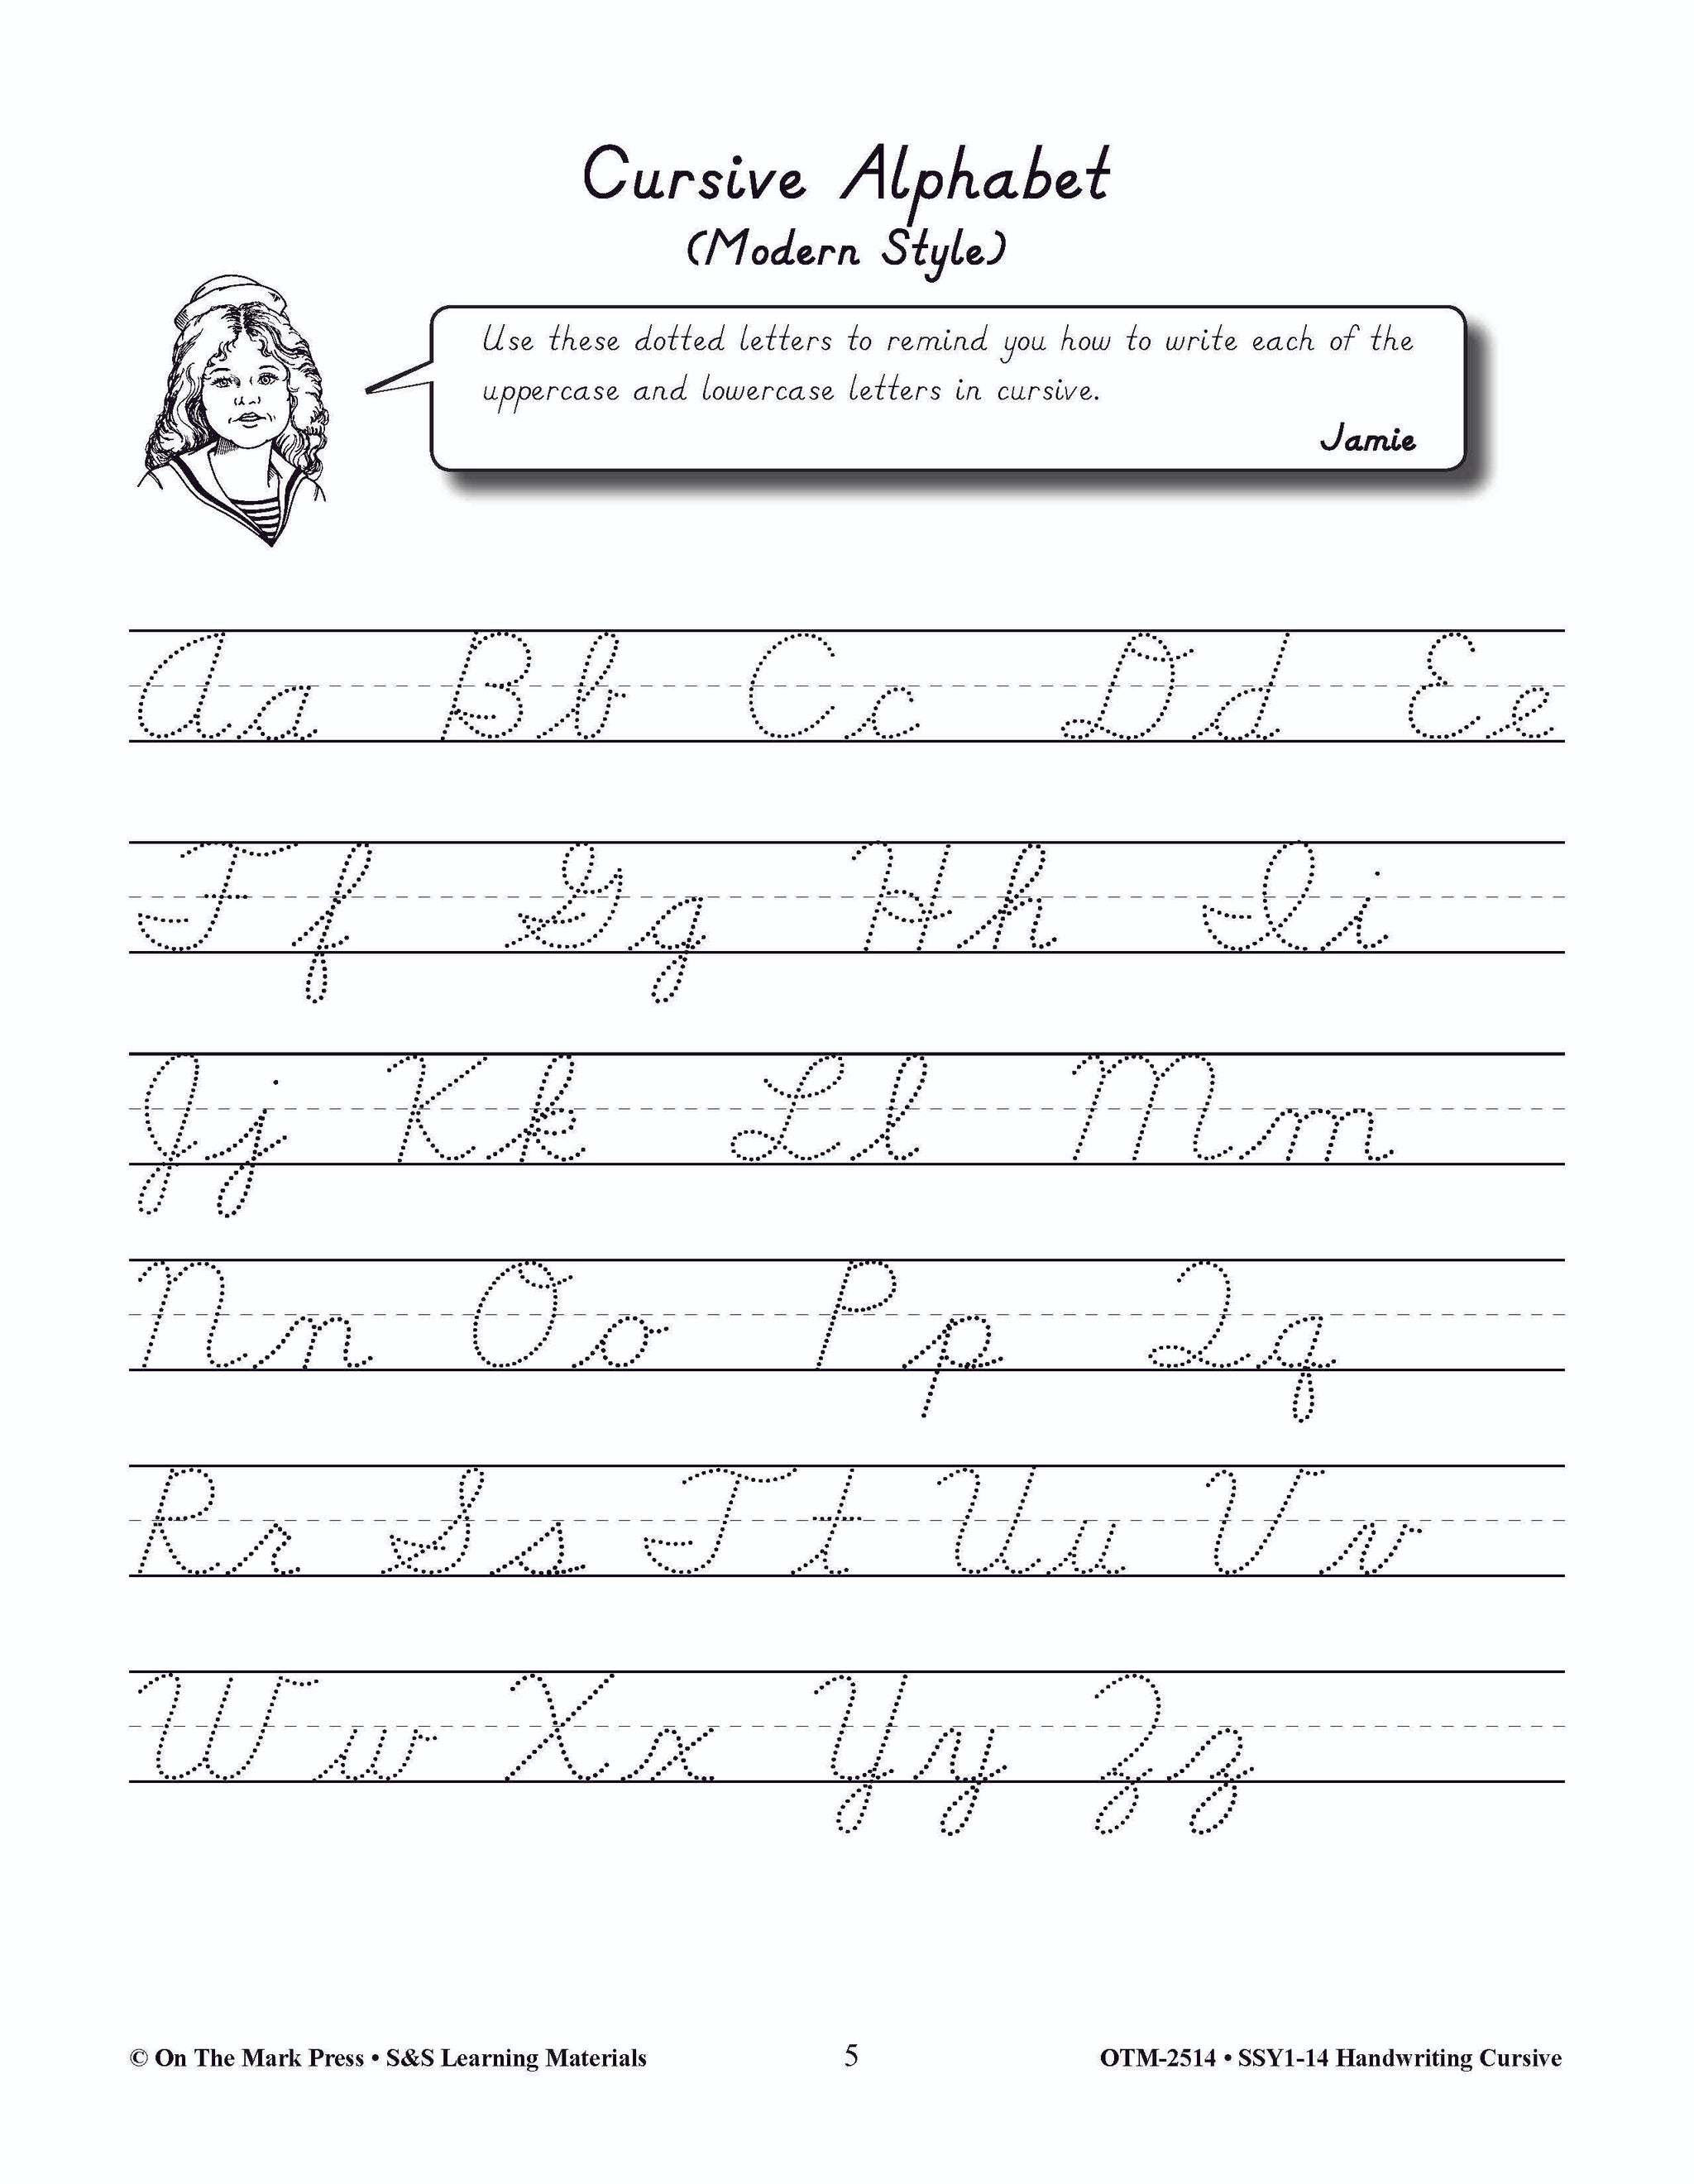 Cursive Alphabet
(Modern Style)
Use these dotted letters to remind you how to write each of the
uppercase and lowercase letters in cursive.
Jamie
Aa Bb Cc Dd Ee
Ff Gg Hh Ii
Jj Kk Ll Mm
Nn Oo Pp Qq
Rr Ss Tt Uu Vv
Ww Xx Yy Zz
© On The Mark Press • S&S Learning Materials 5 OTM-2514 • SSY1-14 Handwriting Cursive